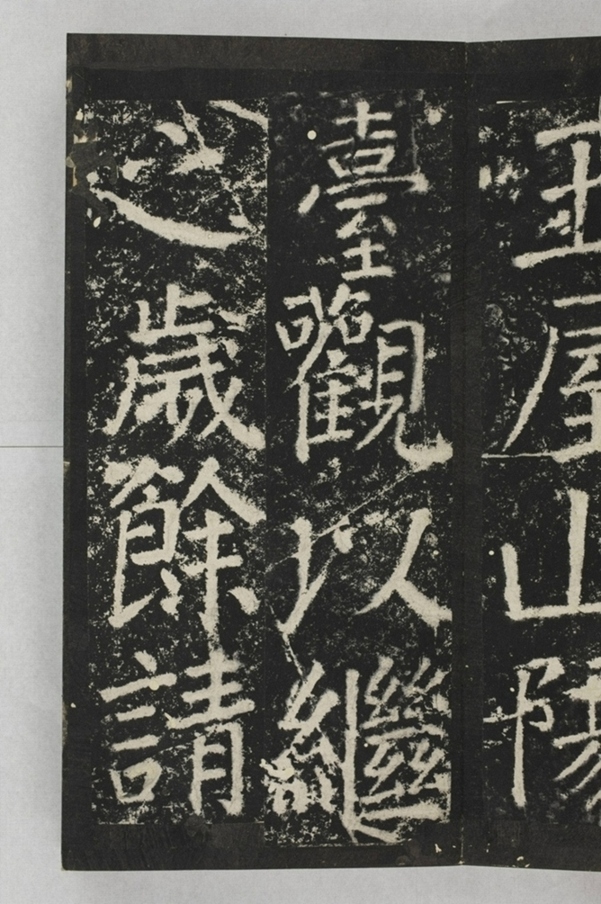 王屋山陽
臺觀以繼
之歲餘請